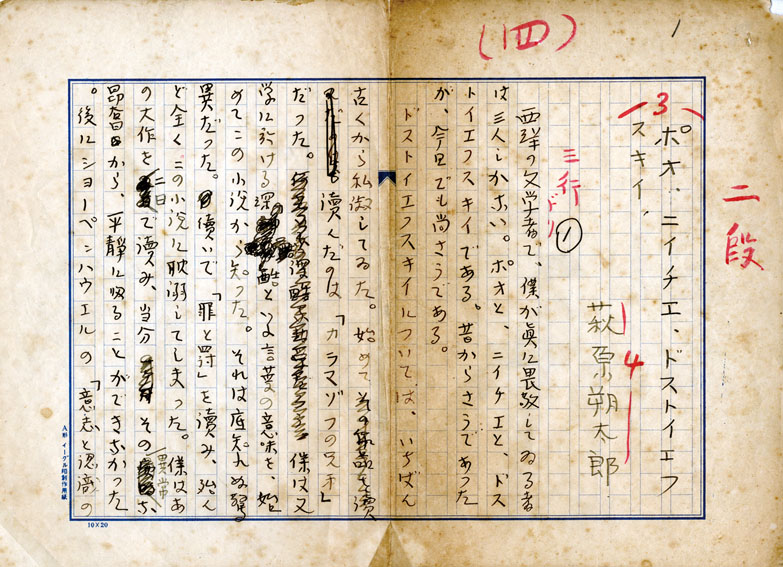 1
(四)
二段
3
ポオ、ニイチエ、ドストイエフ
スキイ、
4
萩原朔太郎
三行ドリ
①
西洋の文学者で、僕が眞に畏敬してゐる者
は三人しかない。ポオと、ニイチエと、ドス
トイエフスキイである。昔からさうであった
が、今日でも尚さうである。
ドストイエフスキイについては、いちばん
古くから私淑してゐた。始めて
讀んだのは「カラマゾフの兄弟」
だった。僕は文
学に於ける深酷といふ言葉の意味を、始
めてこの小説から知った。それは底知れぬ驚
異だった。續いて「罪と罰」を讀み、殆ん
ど全くこの小説に耽溺してしまった。僕はあ
の大作を二日で讀み、当分その異常な
昂奮から、平靜に歸ることができなかった
。後にショーペンハウエルの「意志と認識の
A形 イーグル印製作用紙
10×20